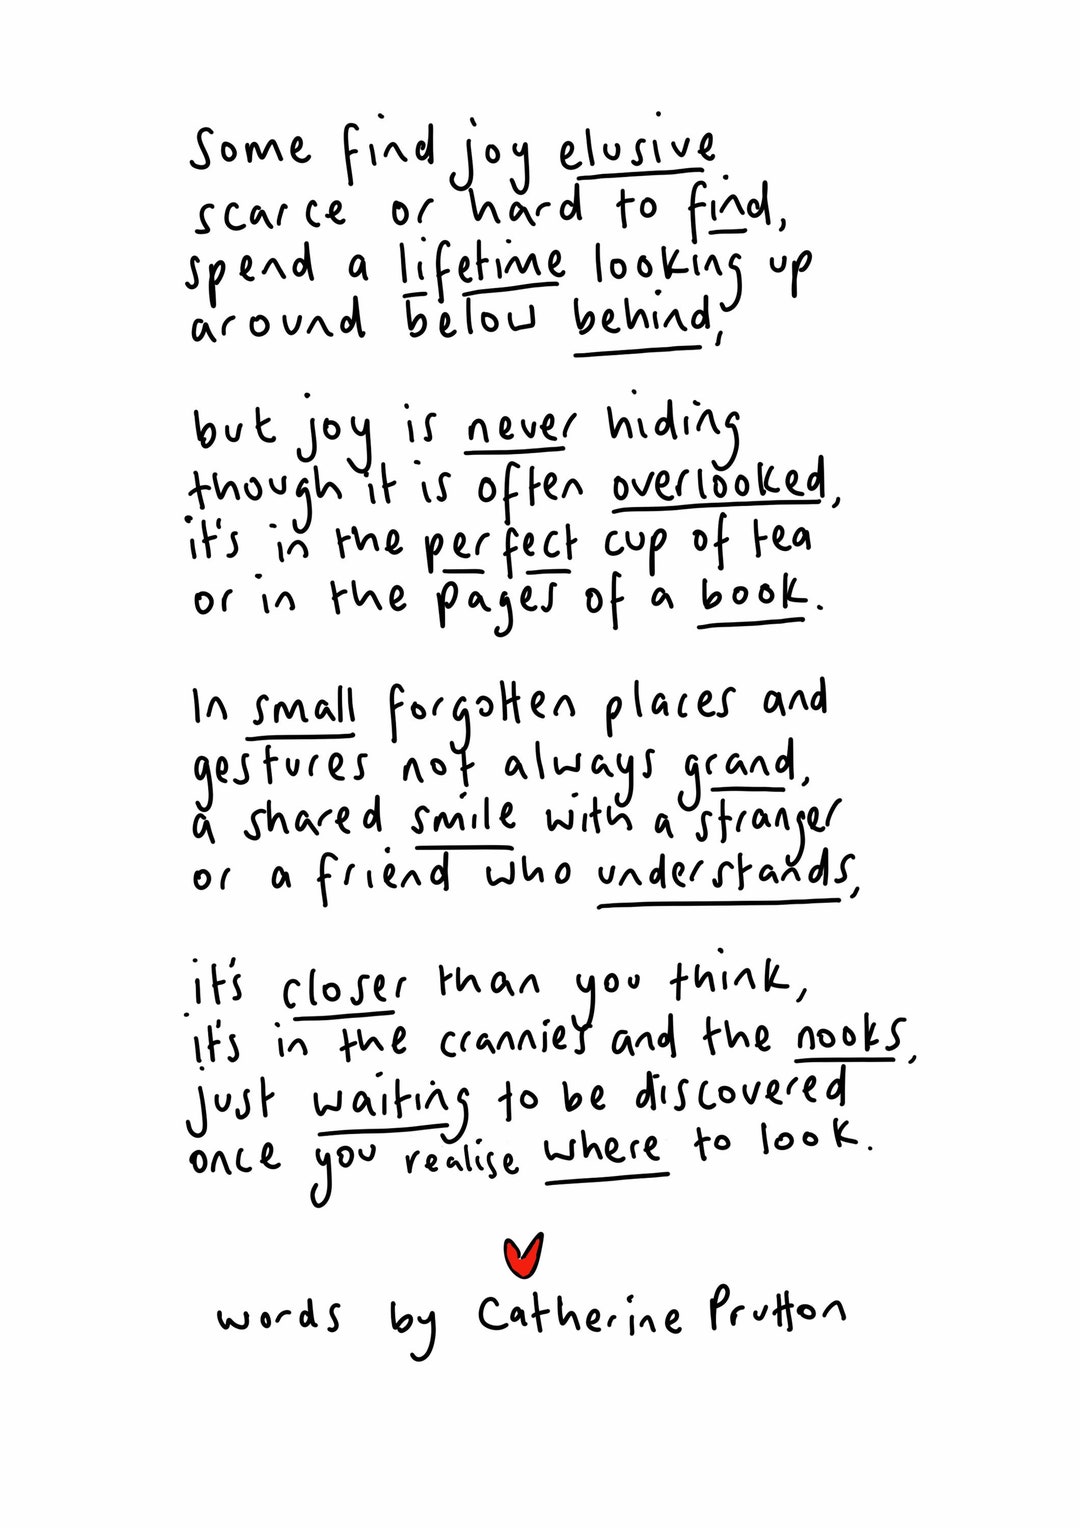 Some find joy elusive
scarce or hard to find,
spend a lifetime looking up
around below behind,
but joy is never hiding
though it is often overlooked,
it's in the perfect cup of tea
or in the pages of a book.
In small forgotten places and
gestures not always grand,
a shared smile with a stranger
or a friend who understands,
it's closer than you think,
it's in the crannies and the nooks,
just waiting to be discovered
once you realise where to look.
words by Catherine Prutton